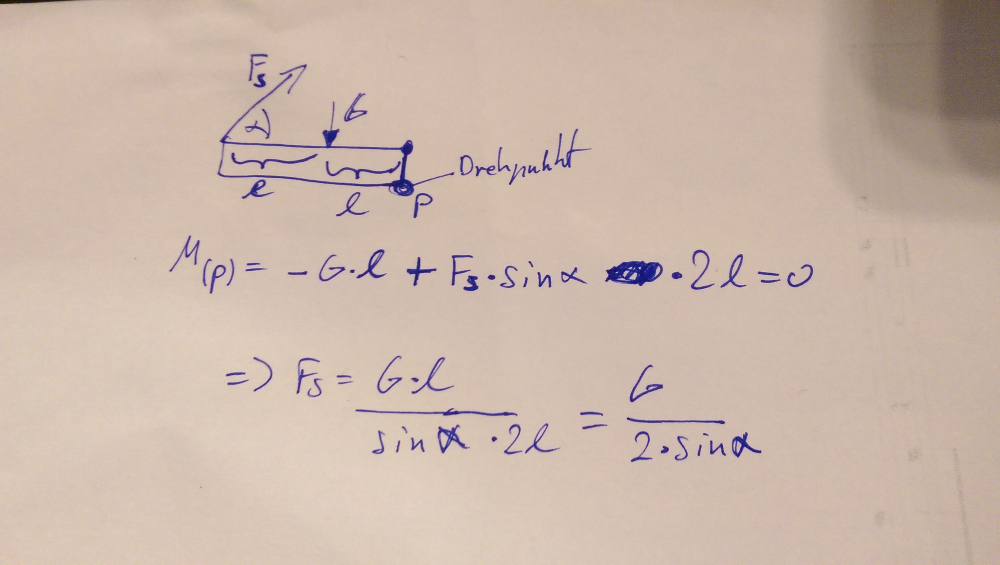 Fs
α
G
Drehpunkt
l
l
P
M(P) = - G·l + Fs·sinα ·2l = 0
=> Fs = G·l / sinα ·2l = G / 2·sinα